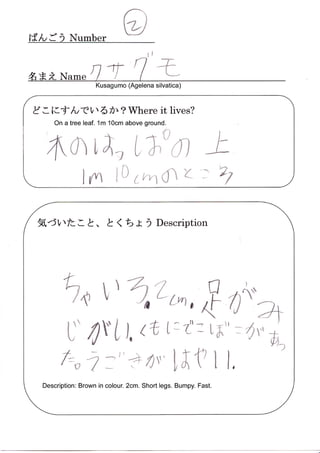 ばんごう Number ②
名まえ Name クサグモ
Kusagumo (Agelena silvatica)
どこにすんでいるか？Where it lives?
On a tree leaf. 1m 10cm above ground.
木のはっぱの上
1m10cmのところ
気づいたこと、とくちょう Description
ちゃいろ。2cm。足がみ
じがい。くもにでこぼこがあっ
た。うごきがはやい。
Description: Brown in colour. 2cm. Short legs. Bumpy. Fast.